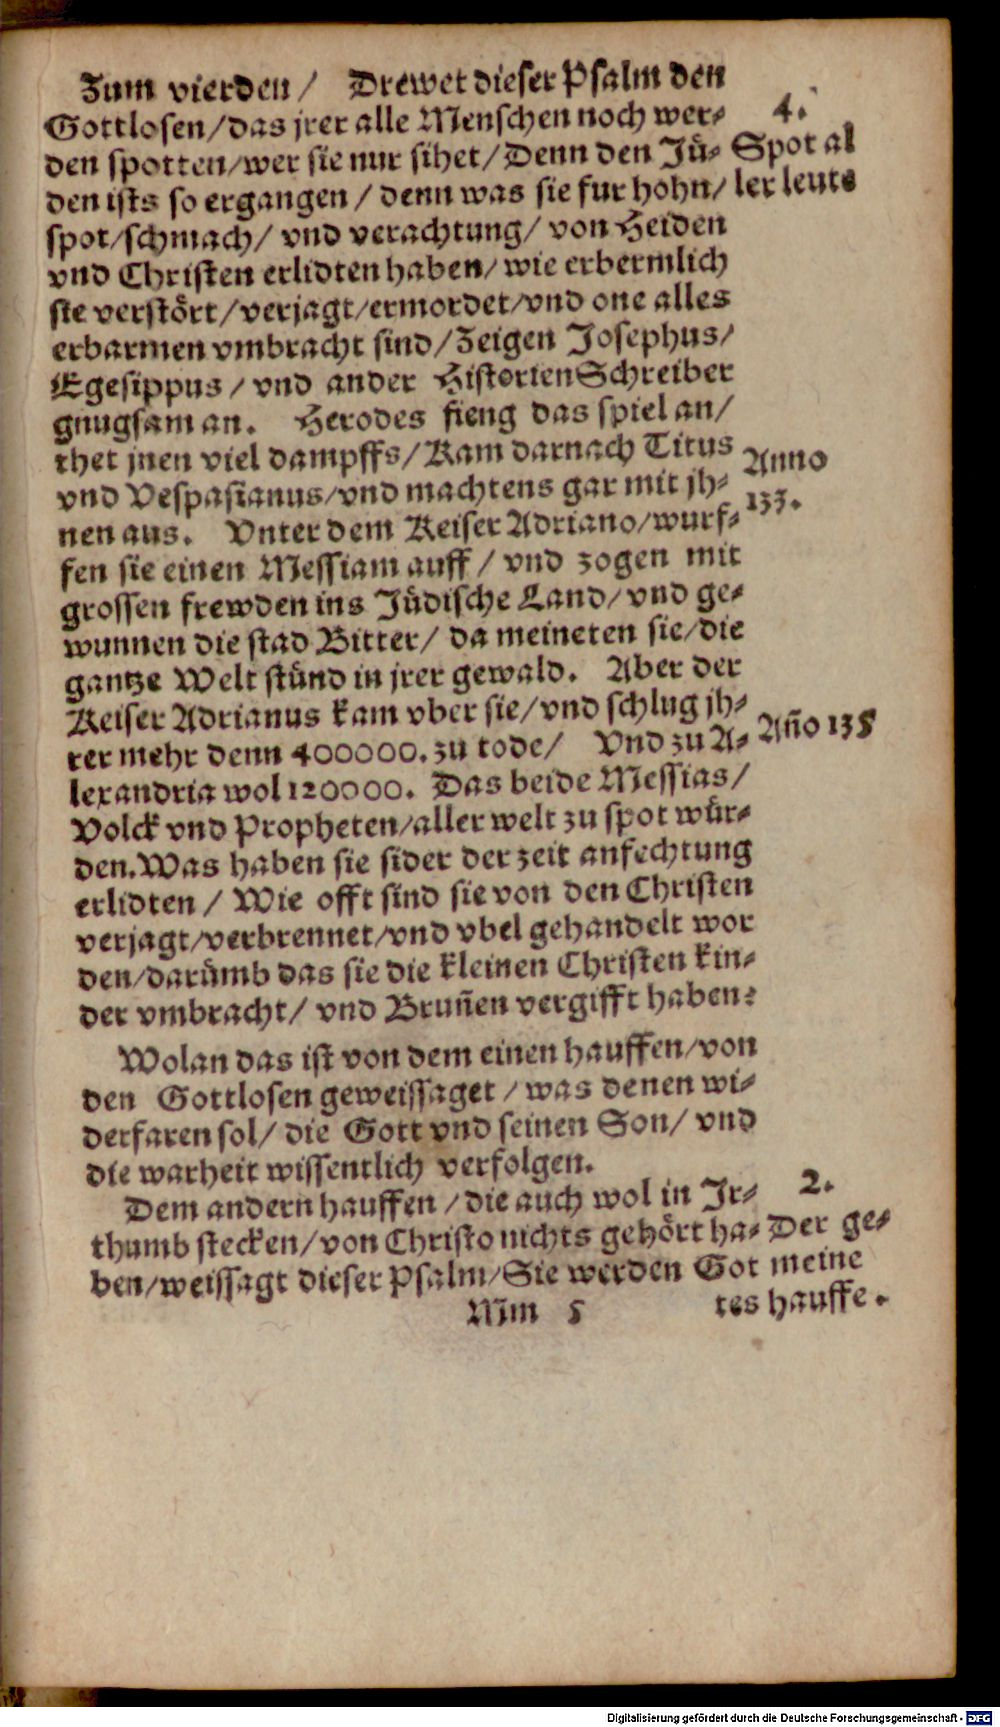 Zum vierden / Drewet dieser Psalm den
Gottlosen/das jrer alle Menschen noch wer-
4.
den spotten/wer sie nur sihet/Denn den Jü-
Spot al
den ists so ergangen / denn was sie fur hohn/
ler leute
spot/schmach/ vnd verachtung/ von Heiden
vnd Christen erlidten haben/ wie erbermlich
sie verstört/verjagt/ermordet/vnd one alles
erbarmen vmbracht sind/Zeigen Josephus/
Egesippus / vnd ander HistorienSchreiber
gnugsam an. Herodes fieng das spiel an/
thet jnen viel dampffs/Kam darnach Titus
Anno
vnd Vespasianus/vnd machtens gar mit jh-
133.
nen aus. Vnter dem Keiser Adriano/wurf-
fen sie einen Messiam auff / vnd zogen mit
grossen frewden ins Jüdische Land/vnd ge-
wunnen die stad Bitter/ da meineten sie/die
gantze Welt stünd in jrer gewald. Aber der
Keiser Adrianus kam vber sie/vnd schlug jh-
Año 135
rer mehr denn 400000. zu tode/ Vnd zu A-
lexandria wol 120000. Das beide Messias/
Volck vnd Propheten/aller welt zu spot wür-
den. Was haben sie sider der zeit anfechtung
erlidten / Wie offt sind sie von den Christen
verjagt/verbrennet/vnd vbel gehandelt wor
den/darümb das sie die kleinen Christen kin-
der vmbracht/ vnd Bruñen vergifft haben:
Wolan das ist von dem einen hauffen/von
den Gottlosen geweissaget / was denen wi-
derfaren sol/ die Gott vnd seinen Son/ vnd
die warheit wissentlich verfolgen.
Dem andern hauffen / die auch wol in Jr-
2.
thumb stecken/von Christo nichts gehört ha-
Der ge-
ben/weissagt dieser Psalm/Sie werden Got
meine
Mm 5
tes hauffe.
Digitalisierung gefördert durch die Deutsche Forschungsgemeinschaft - DFG